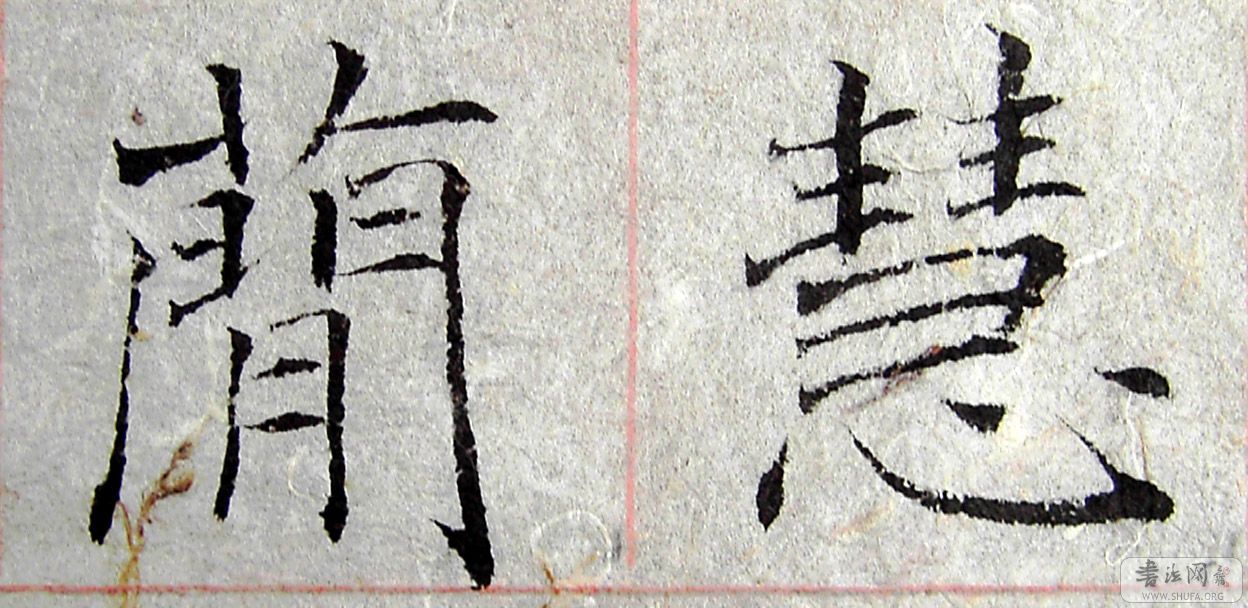 慧
簡
書法网
WWW.SHUFA.ORG